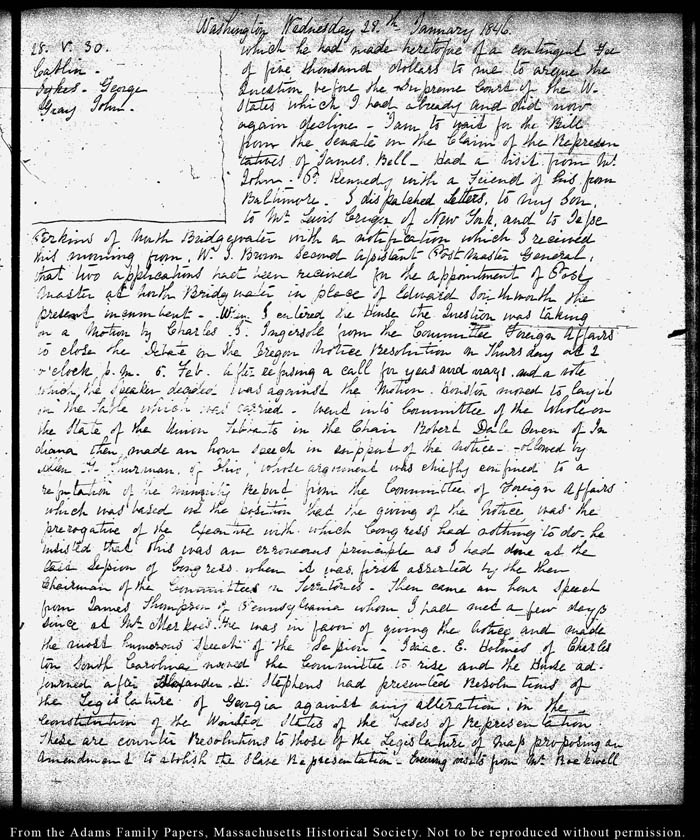 Washington Wednesday 28th January 1846.
28. V. 30.
Catlin.
Sykes. George
Gray John.
which he had made heretofore of a contingent fee
of five thousand dollars to me to argue the
question before the Supreme Court of the U.
States which I had already and did now
again decline. I am to wait for the Bill
from the Senate on the Claim of the Represen
tatives of James Bell. Had a visit from Mr
John. P. Kennedy with a Friend of his from
Baltimore. I dispatched letters, to my Son,
to Mr Lewis Cruger of New York, and to Jesse
Perkins of North Bridgewater with a notification which I received
this morning from Wm J. Brown second Assistant Post Master General,
that two applications had been received for the appointment of Post
Master at North Bridgewater in place of Edward Southworth the
present incumbent. When I entered the House the Question was taking
on a Motion by Charles J. Ingersoll from the Committee Foreign Affairs
to close the Debate on the Oregon Notice Resolution on Thursday at 2
o'clock p.m. 5. Feb. After refusing a call for yeas and nays. and a vote
which the Speaker decided was against the Motion. Houston moved to lay it
on the Table which was carried. Went into Committee of the Whole on
the State of the Union Tibbatts in the Chair Robert Dale Owen of In
diana then made an hour speech in support of the notice. followed by
Allen G Thurman, of Ohio, whose argument was chiefly confined to a
refutation of the minority Report from the Committee of Foreign Affairs
which was based on the position that the giving of the notice was the
prerogative of the Executive with which Congress had nothing to do. he
insisted that this was an erroneous principle as I had done at the
last Session of Congress. when it was first asserted by the then
Chairman of the Committee on Territories. Then came an hour Speech
from James Thompson of Pennsylvania whom I had met a few days
since at Mr Markoe's. He was in favor of giving the Notice and made
the most humorous speech of the Session. Isaac. E. Holmes of Charles
ton South Carolina moved the Committee to rise and the House ad-
journed after Alexander H. Stephens had presented Resolutions of
the Legislature of Georgia against any alteration. in the
Constitution of the United States of the bases of Representation
These are counter Resolutions to those of the Legislature of Mass proposing an
amendment to abolish the Slave Representation. Evening visits from Mr Rockwell
From the Adams Family Papers, Massachusetts Historical Society. Not to be reproduced without permission.